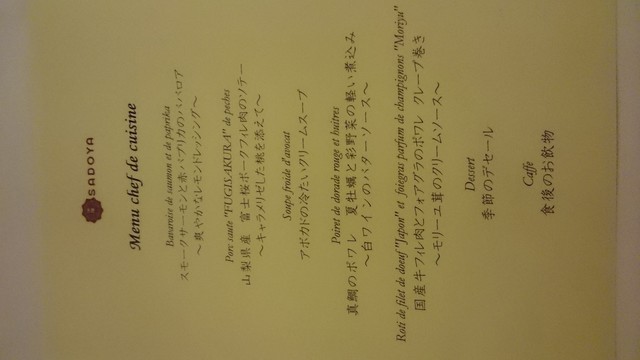 SADOYA
Menu chef de cuisine
Bavaroise de saumon et de paprika
スモークサーモンと赤パプリカのババロア
～爽やかなレモンドレッシング～
Porc saute "FUGISAKURA" de peches
山梨県産 富士桜ポークフィレ肉のソテー
～キャラメリゼした桃を添えて～
Soupe froide d'avocat
アボカドの冷たいクリームスープ
Poiret de dorade rouge et huitres
真鯛のポワレ 夏牡蠣と彩野菜の軽い煮込み
～白ワインのバターソース～
Roti de filet de doeuf "Japon" et foiegras parfum de champignons "Moriyu"
国産牛フィレ肉とフォアグラのポワレ クレープ巻き
～モリーユ茸のクリームソース～
Dessert
季節のデセール
Caffe
食後のお飲物